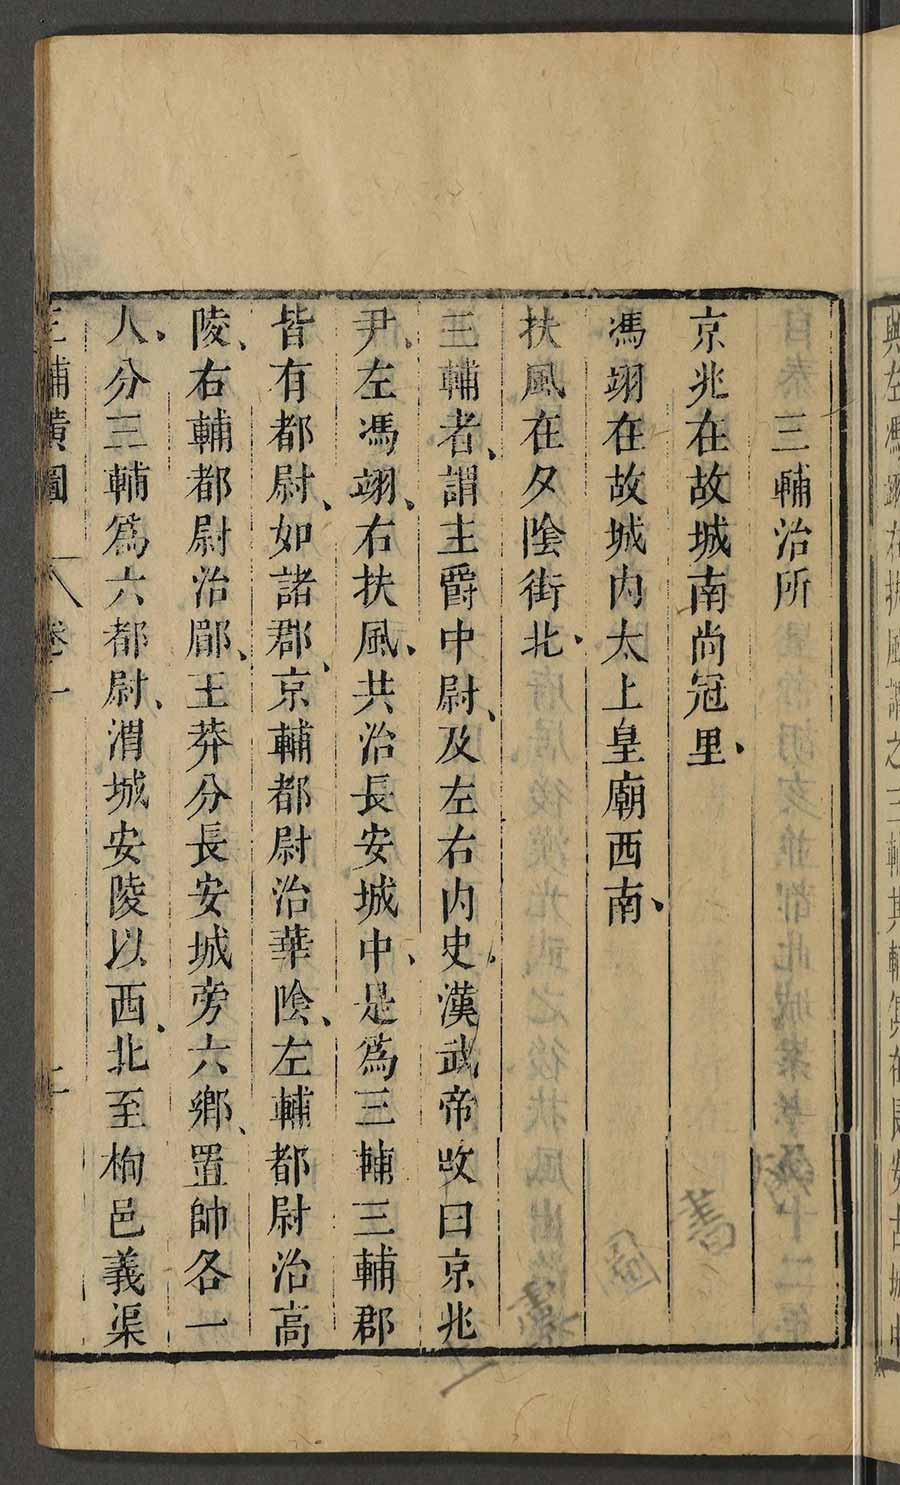 三輔治所
京兆在故城南尚冠里、
馮翊在故城内太上皇廟西南、
扶風在夕陰街北、
三輔者、謂主爵中尉、及左右内史、漢武帝改曰京兆
尹、左馮翊、右扶風、共治長安城中、是爲三輔三輔郡
皆有都尉、如諸郡、京輔都尉治華陰、左輔都尉治高
陵、右輔都尉治郿、王莽分長安城旁六鄉、置帥各一
人、分三輔爲六都尉、渭城安陵以西、北至栒邑義渠
三輔黄圖 卷一